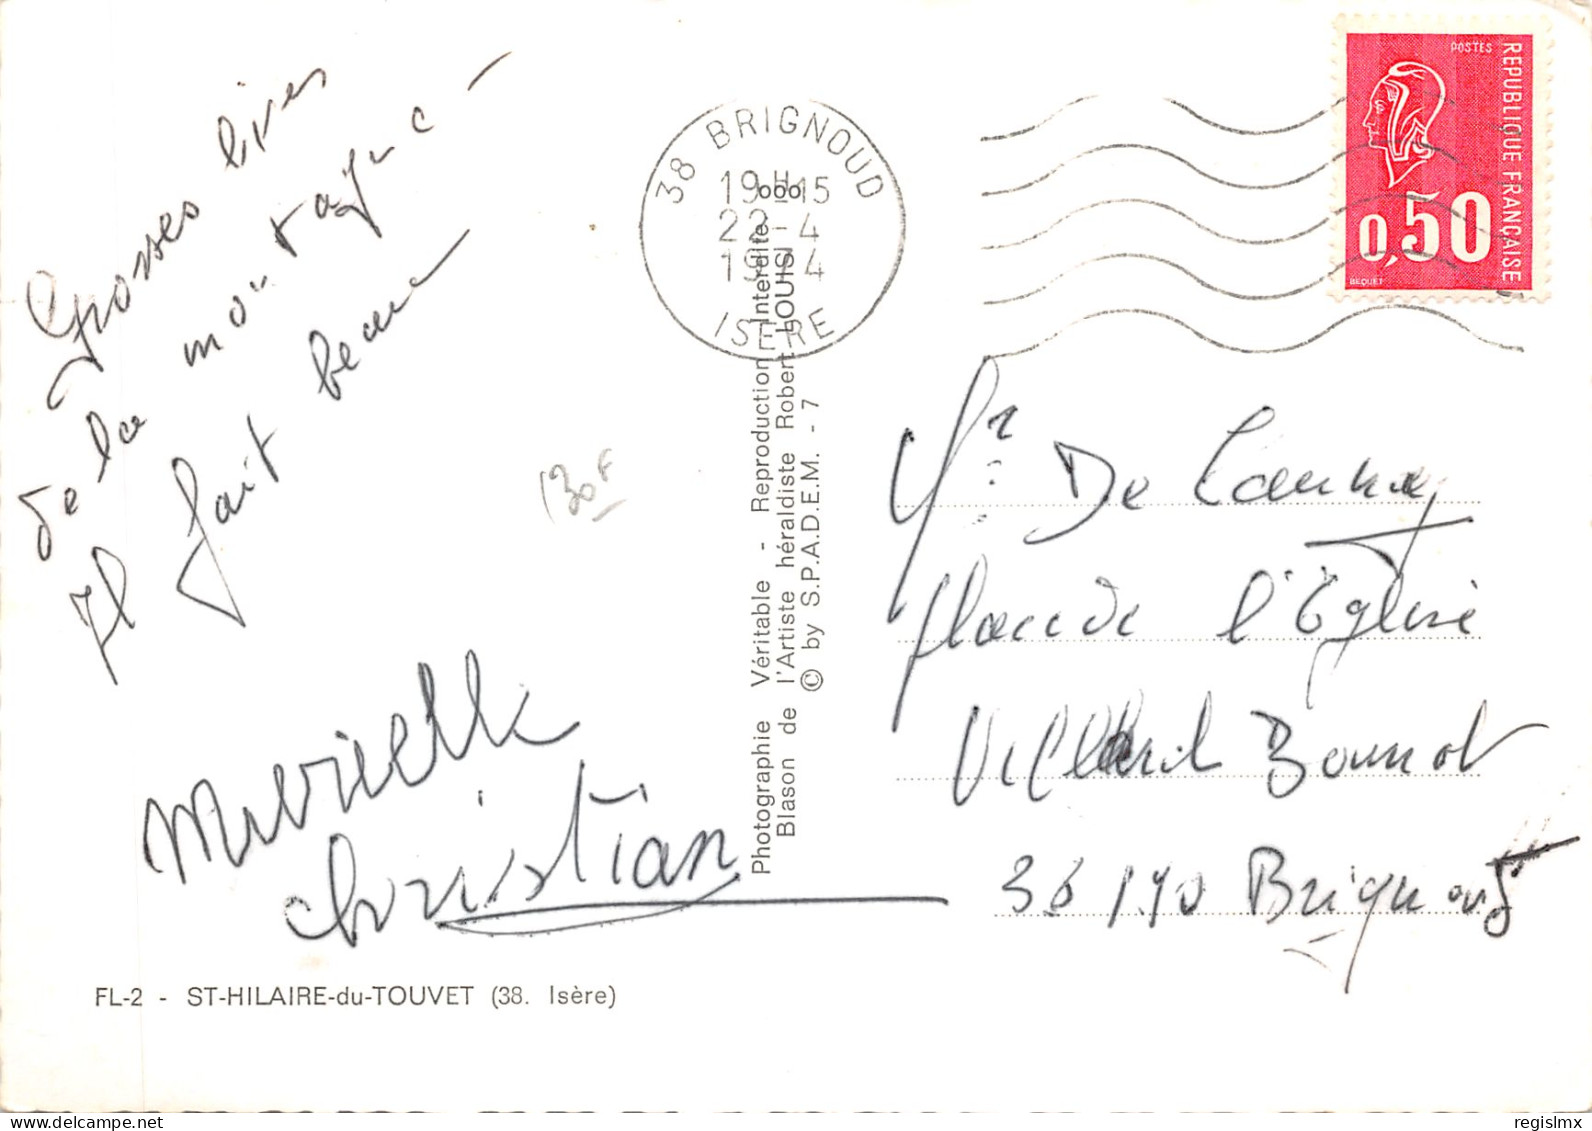 Grosses bises
de la montagne -
Il fait beau
Murielle
Christian
FL-2 - ST-HILAIRE-du-TOUVET (38. Isère)
130F
Photographie Véritable - Reproduction Interdite
Blason de l'Artiste héraldiste Robert LOUIS
© by S.P.A.D.E.M. - 7
38 BRIGNOUD
19H15
22-4
1974
ISERE
POSTES
REPUBLIQUE FRANÇAISE
0,50
BEQUET
Mr De Launay
Place de l'Eglise
Villard Bonnot
38190 Brignoud
regislmx
delcampe.net